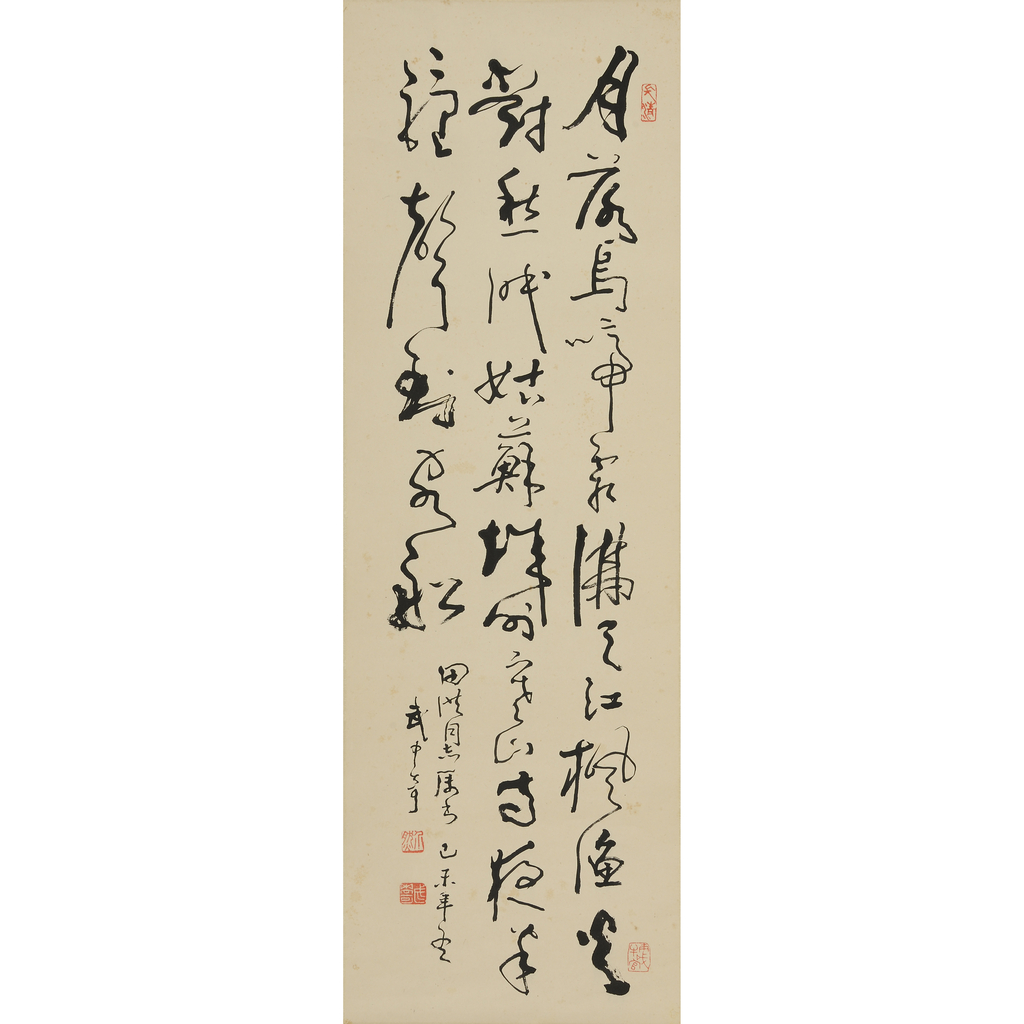 月落烏啼霜滿天江楓漁火
對愁眠姑蘇城外寒山寺夜半
鐘聲到客船
田洪同志屬書 己未年冬
武中奇